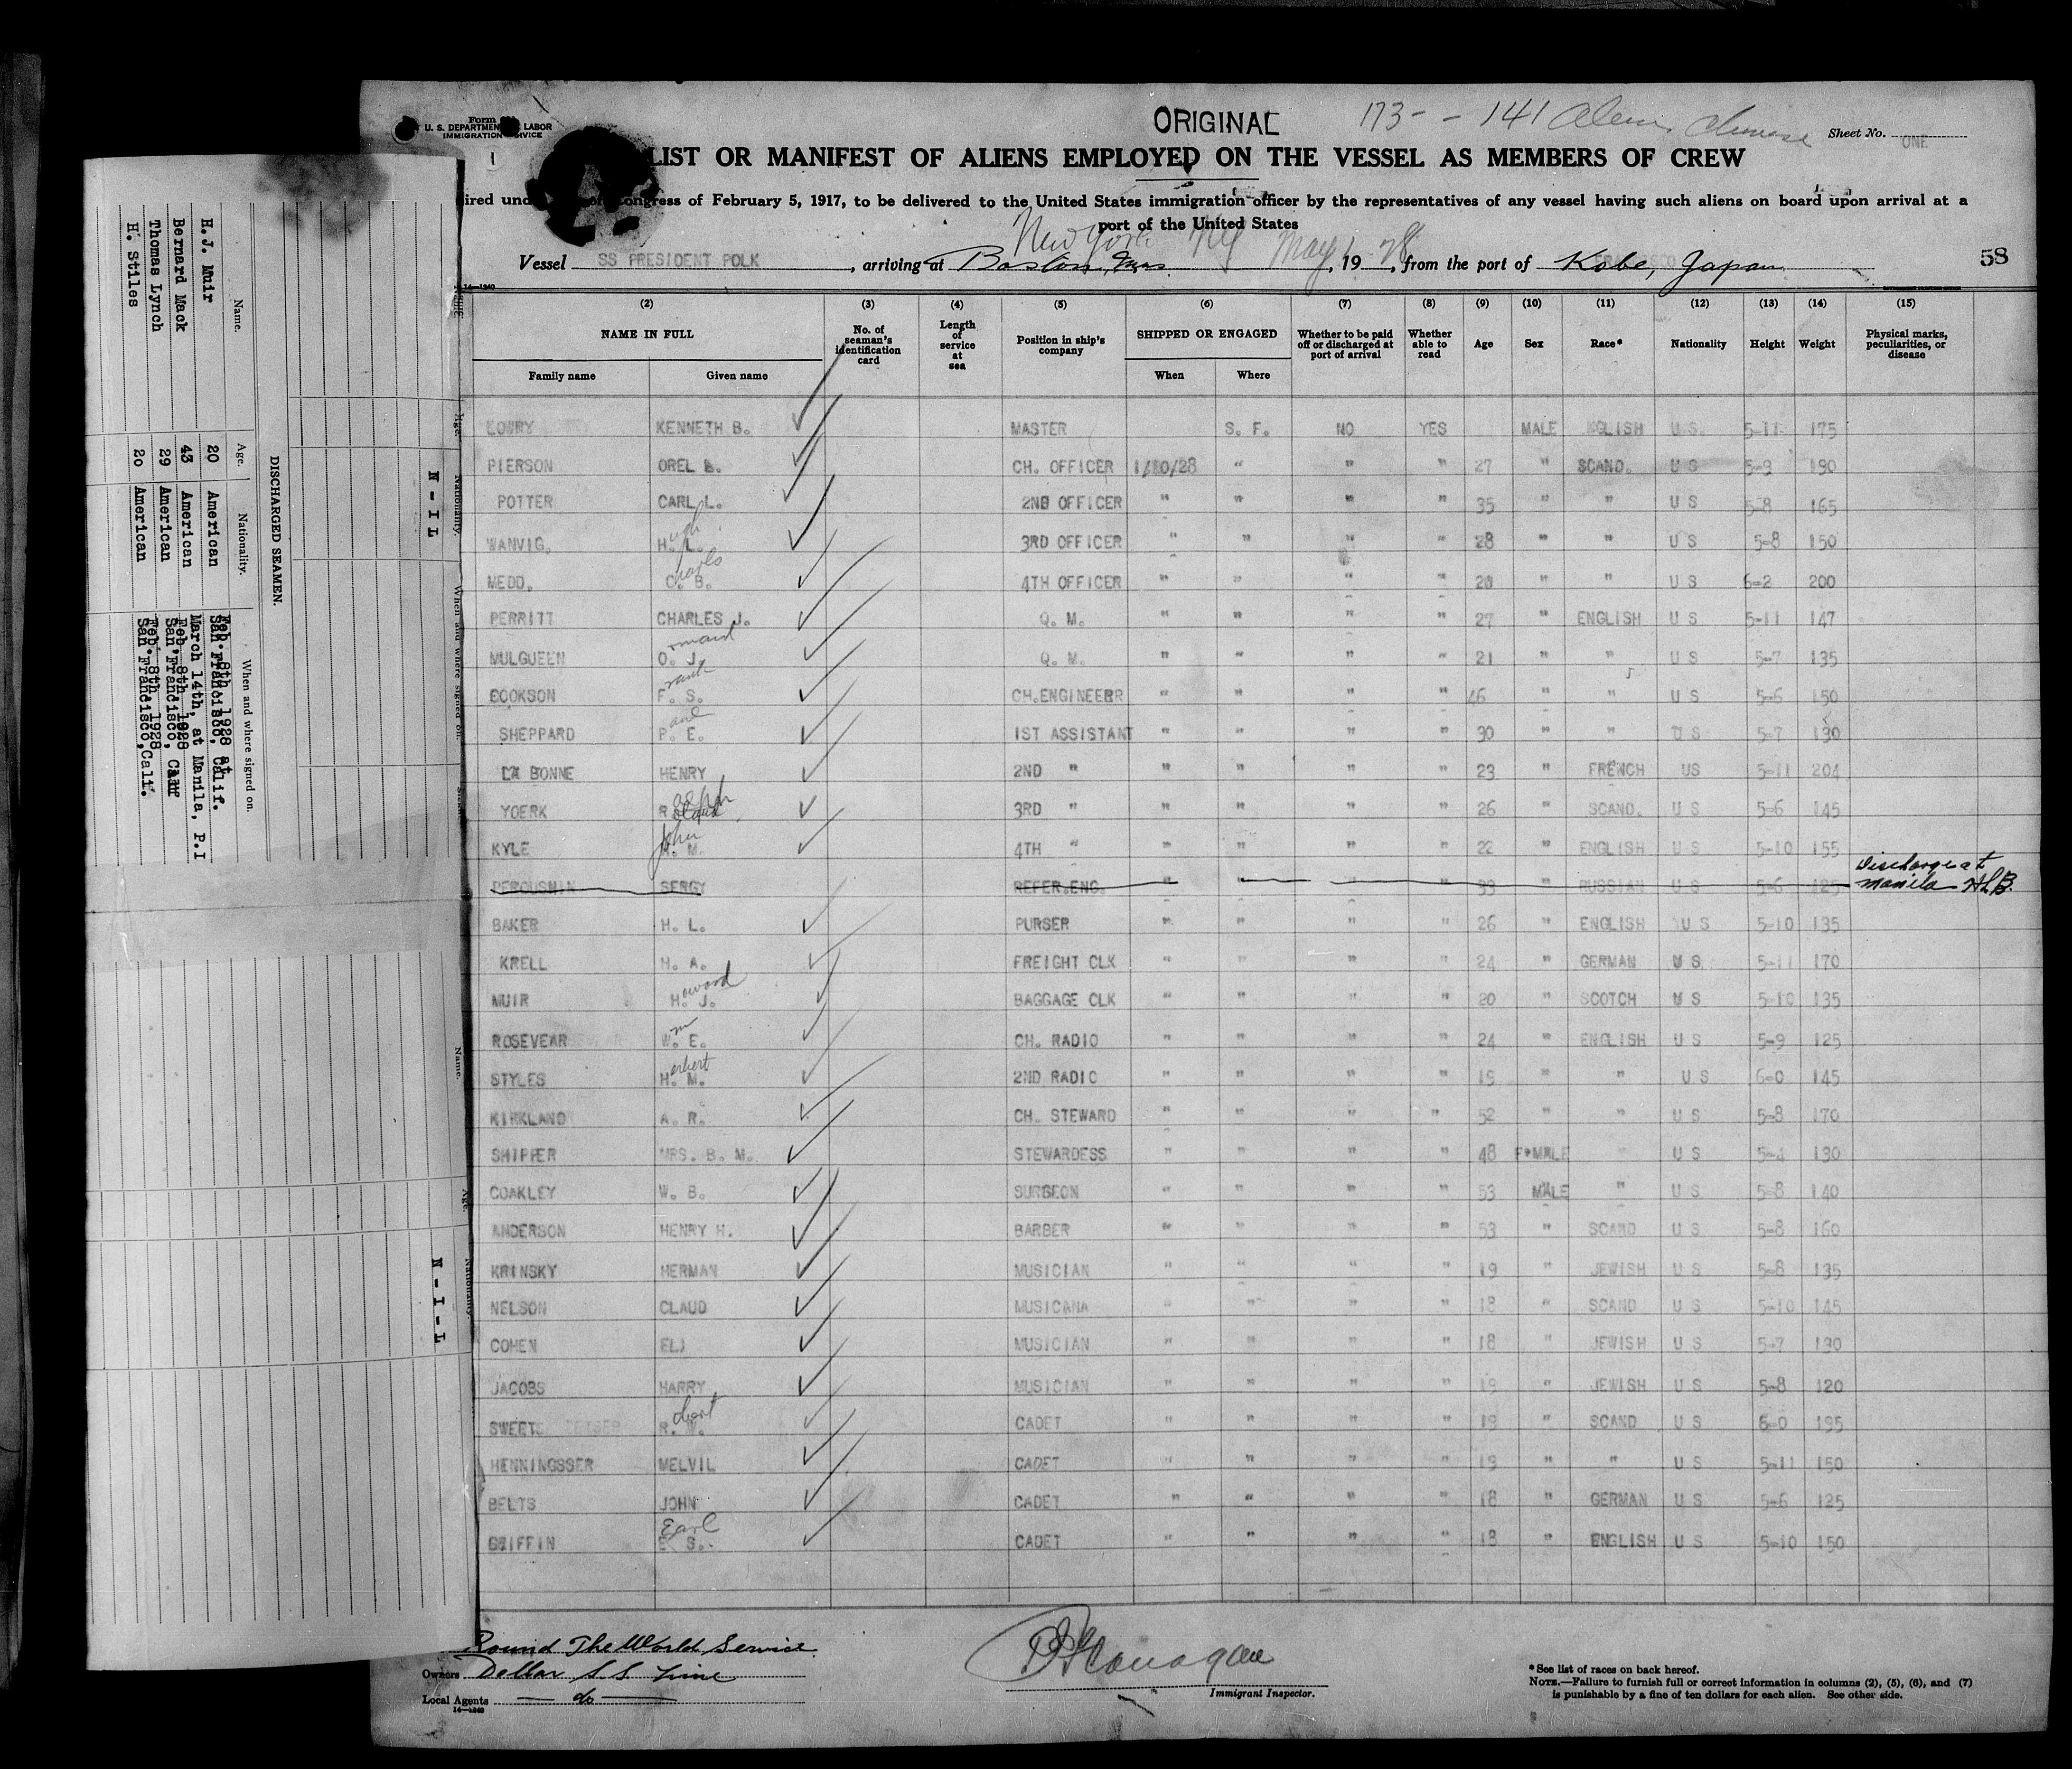 Form
U. S. DEPARTMENT LABOR
IMMIGRATION SERVICE
ORIGINAL
173 - - 141 Aliens Chinese
Sheet No. ONE
LIST OR MANIFEST OF ALIENS EMPLOYED ON THE VESSEL AS MEMBERS OF CREW
ired und Congress of February 5, 1917, to be delivered to the United States immigration officer by the representatives of any vessel having such aliens on board upon arrival at a
port of the United States
New York NY May 1 28
Vessel SS PRESIDENT POLK, arriving at Boston, Mas, 19, from the port of Kobe, Japan
58
14—1240
(2) (3) (4) (5) (6) (7) (8) (9) (10) (11) (12) (13) (14) (15)
NAME IN FULL
Family name Given name
No. of seaman's identification card
Length of service at sea
Position in ship's company
SHIPPED OR ENGAGED
When Where
Whether to be paid off or discharged at port of arrival
Whether able to read
Age Sex Race* Nationality Height Weight
Physical marks, peculiarities, or disease
LOWRY KENNETH B. MASTER S. F. NO YES MALE NGLISH U S. 5-11 175
PIERSON OREL L. CH. OFFICER 1/10/28 " " " 27 " SCAND. U S 5-9 190
POTTER CARL L. 2ND OFFICER " " " " 35 " " U S 5-8 165
WANVIG. H. L. ugh 3RD OFFICER " " " " 28 " " U S 5-8 150
MEDD. C. B. harls 4TH OFFICER " " " " 20 " " U S 6-2 200
PERRITT CHARLES J. Q. M. " " " " 27 " ENGLISH U S 5-11 147
MULGUEEN O. J. Q. M. " " " " 21 " " U S 5-7 135
COOKSON F. S. rank CH.ENGINEERR " " " " 46 " " U S 5-6 150
SHEPPARD P. E. aul 1ST ASSISTANT " " " " 30 " " U S 5-7 130
LA BONNE HENRY 2ND " " " " " 23 " FRENCH US 5-11 204
YOERK R. 3RD " " " " " 26 " SCAND. U S 5-6 145
KYLE John M. 4TH " " " " " 22 " ENGLISH U S 5-10 155
PEROUSHIN SERGY REFER.ENG. " " " " 33 " RUSSIAN U S 5-6 125 Discharge at Manila HLB.
BAKER H. L. PURSER " " " " 26 " ENGLISH U S 5-10 135
KRELL H. A. FREIGHT CLK " " " " 24 " GERMAN U S 5-11 170
MUIR H. J. oward BAGGAGE CLK " " " " 20 " SCOTCH U S 5-10 135
ROSEVEAR W. E. m CH. RADIO " " " " 24 " ENGLISH U S 5-9 125
STYLES H. M. erbert 2ND RADIO " " " " 19 " " U S 6-0 145
KIRKLAND A. R. CH. STEWARD " " " " 52 " " U S 5-8 170
SHIPPER MRS. B. M. STEWARDESS " " " " 48 FEMALE " U S 5-4 130
COAKLEY W. B. SURGEON " " " " 53 MALE " U S 5-8 140
ANDERSON HENRY H. BARBER " " " " 53 " SCAND U S 5-8 160
KRINSKY HERMAN MUSICIAN " " " " 19 " JEWISH U S 5-8 135
NELSON CLAUD MUSICANA " " " " 18 " SCAND U S 5-10 145
COHEN ELI MUSICIAN " " " " 18 " JEWISH U S 5-7 130
JACOBS HARRY MUSICIAN " " " " 19 " JEWISH U S 5-8 120
SWEETS R. W. obert CADET " " " " 19 " SCAND U S 6-0 195
HENNINGSSER MELVIL CADET " " " " 19 " " U S 5-11 150
BELTS JOHN CADET " " " " 18 " GERMAN U S 5-6 125
GRIFFIN E S. Earl CADET " " " " 18 " ENGLISH U S 5-10 150
Round The World Service
Owners Dollar S.S. Line
Local Agents — do —
14—1240
Immigrant Inspector.
*See list of races on back hereof.
NOTE.—Failure to furnish full or correct information in columns (2), (5), (6), and (7)
is punishable by a fine of ten dollars for each alien. See other side.
DISCHARGED SEAMEN.
Name. Age. Nationality. When and where signed on.
H. J. Muir 20 American Feb. 8th 1928 at San Francisco, Calif.
Bernard Mack 43 American March 14th, at Manila, P.I
Thomas Lynch 29 American Feb. 8th, 1928 San Francisco,
H. Stiles 20 American Feb. 8th 1928 San Francisco, Calif.
Name. Age. Nationality. When and where signed on.
N - I L
Name. Age. Nationality.
N - I - L